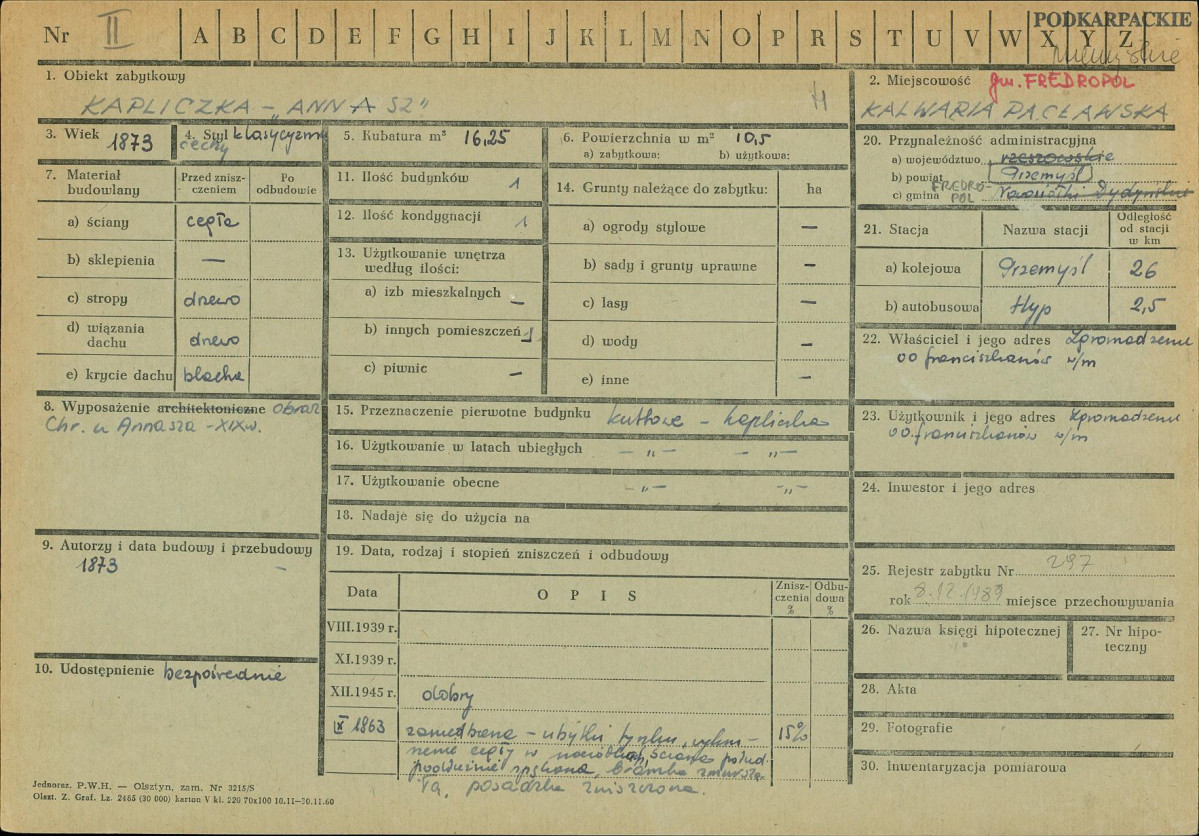 Nr II A B C D E F G H I J K L M N O P R S T U V W X Y Z
PODKARPACKIE
przemyskie
1. Obiekt zabytkowy
KAPLICZKA - "ANNASZ"
11
2. Miejscowość gm. FREDROPOL
KALWARIA PACŁAWSKA
3. Wiek 1873
4. Styl klasycyzm
cechy
5. Kubatura m³ 16,25
6. Powierzchnia w m² 10,5
a) zabytkowa: b) użytkowa:
7. Materiał budowlany
Przed zniszczeniem
Po odbudowie
a) ściany cegła
b) sklepienia —
c) stropy drewo
d) wiązania dachu drewo
e) krycie dachu blacha
8. Wyposażenie architektoniczne obraz
Chr. u Annasza - XIXw.
9. Autorzy i data budowy i przebudowy
1873 -
10. Udostępnienie bezpośrednie
11. Ilość budynków 1
12. Ilość kondygnacji 1
13. Użytkowanie wnętrza
według ilości:
a) izb mieszkalnych —
b) innych pomieszczeń 1
c) piwnic —
14. Grunty należące do zabytku: ha
a) ogrody stylowe —
b) sady i grunty uprawne —
c) lasy —
d) wody —
e) inne —
15. Przeznaczenie pierwotne budynku kultowe - kapliczka
16. Użytkowanie w latach ubiegłych — „ — — „ —
17. Użytkowanie obecne — „ — — „ —
18. Nadaje się do użycia na
19. Data, rodzaj i stopień zniszczeń i odbudowy
Data OPIS Zniszczenia % Odbudowa %
VIII.1939 r.
XI.1939 r.
XII.1945 r. dobry
IX 1963 zaniedbana - ubytki tynku,
cegły w ściana połud.
15%
posadzka zniszczona.
20. Przynależność administracyjna
a) województwo rzeszowskie
b) powiat Przemyśl
c) gmina FREDROPOL Nowosiółki Dydyńskie
21. Stacja Nazwa stacji Odległość od stacji w km
a) kolejowa Przemyśl 26
b) autobusowa Hyp 2,5
22. Właściciel i jego adres Zgromadzenie
oo franciszkanów w/m
23. Użytkownik i jego adres Zgromadzenie
oo. franciszkanów w/m
24. Inwestor i jego adres
25. Rejestr zabytku Nr 297
rok 8.12.1989 miejsce przechowywania
26. Nazwa księgi hipotecznej
27. Nr hipoteczny
28. Akta
29. Fotografie
30. Inwentaryzacja pomiarowa
Jednoraz. P.W.H. — Olsztyn, zam. Nr 3215/S
Olszt. Z. Graf. Lz. 2485 (30 000) karton V kl. 220 70x100 10.11—30.11.60